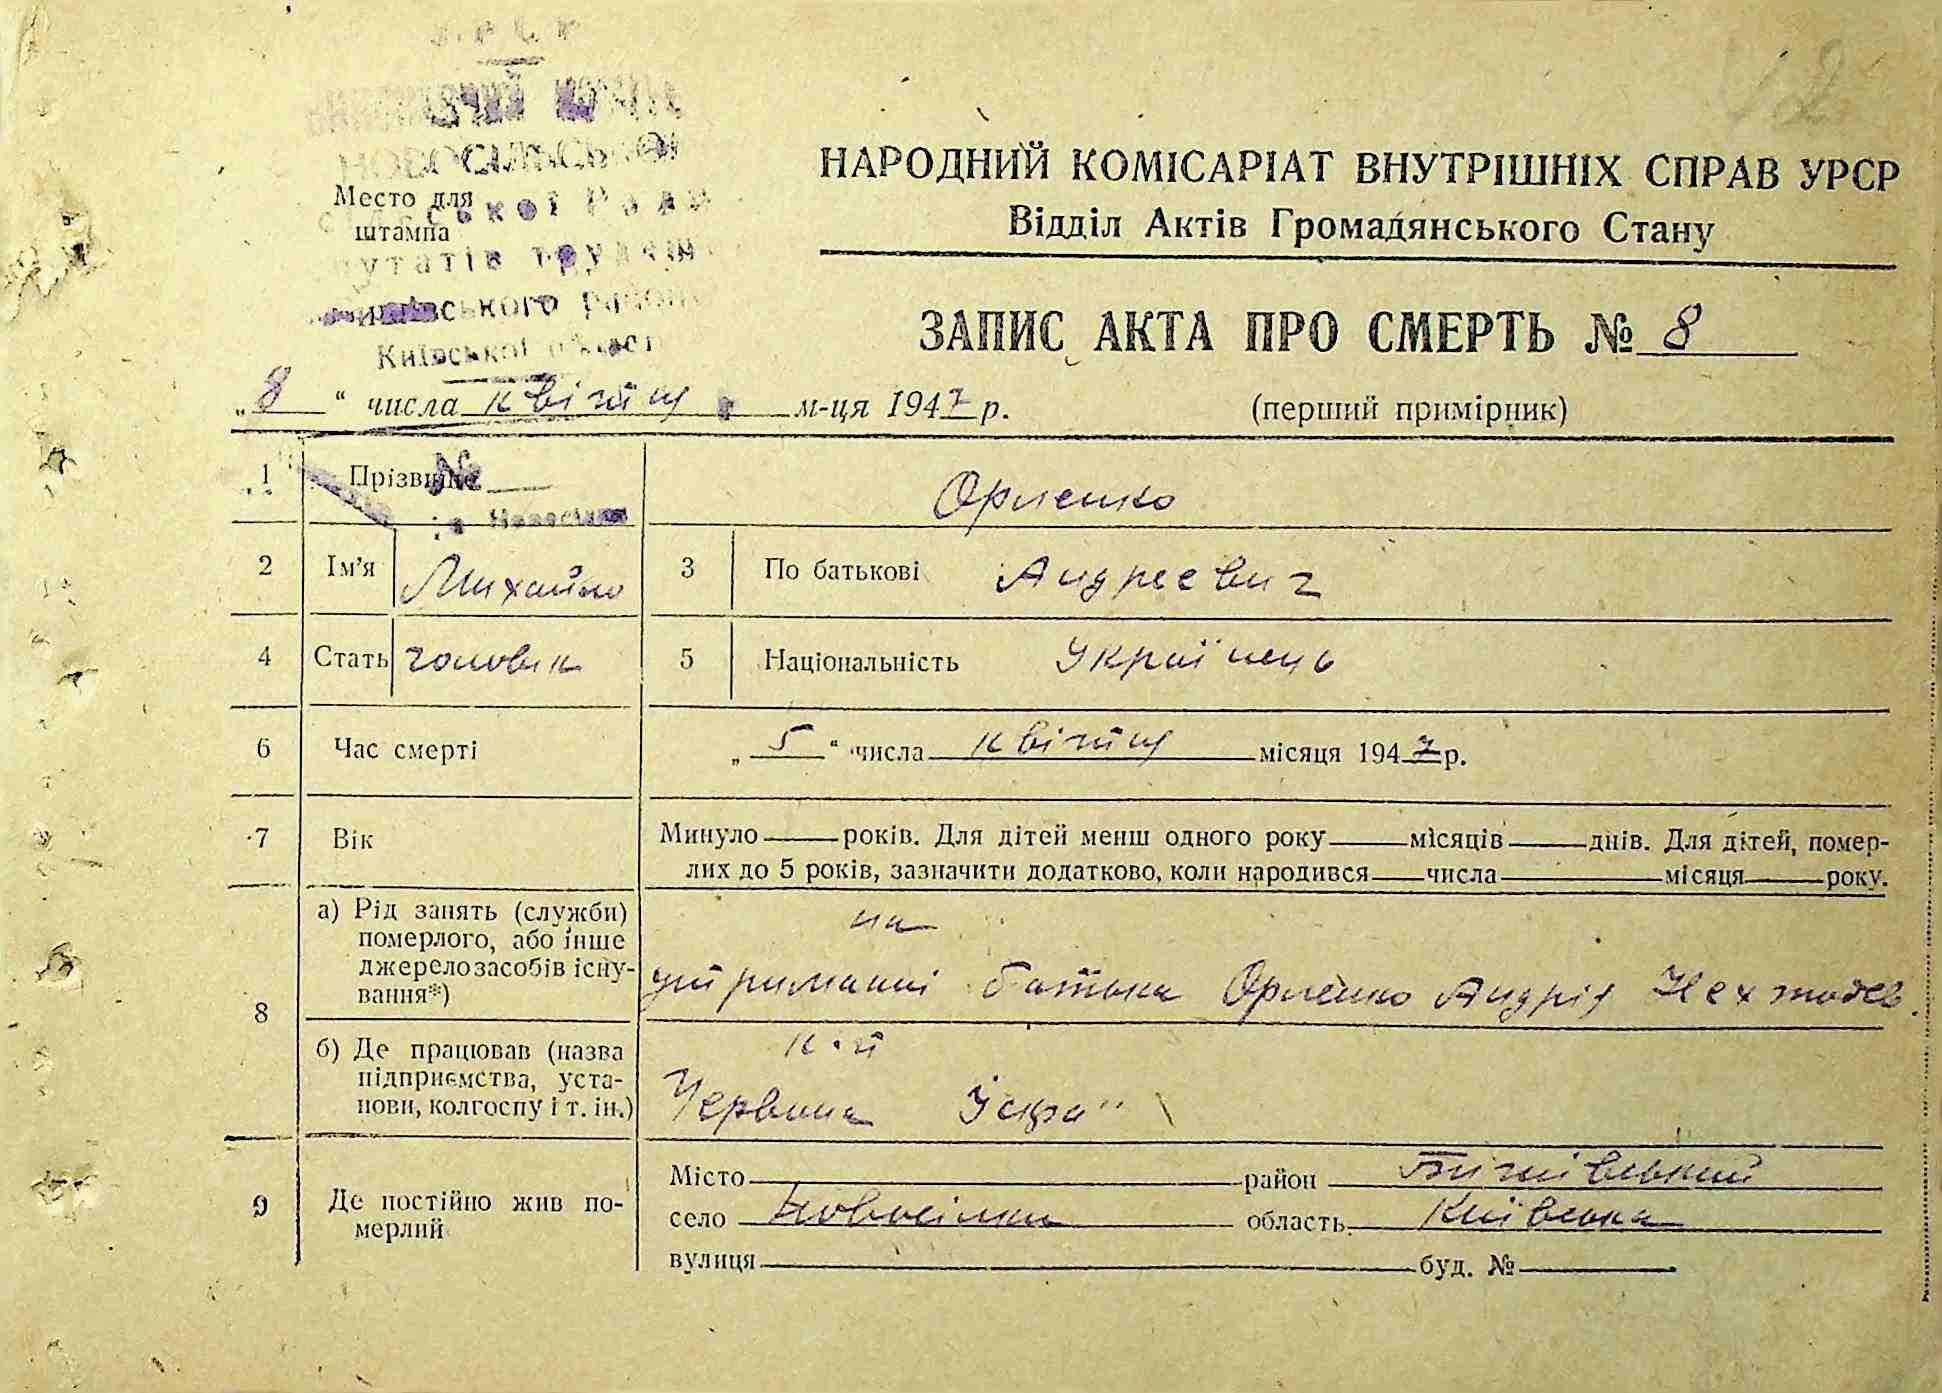 НОВОСІЛЬСЬКОЇ
Место для
штампа
сільської Ради
депутатів трудящих
району
Київської області
НАРОДНИЙ КОМІСАРІАТ ВНУТРІШНІХ СПРАВ УРСР
Відділ Актів Громадянського Стану
ЗАПИС АКТА ПРО СМЕРТЬ № 8
„8“ числа квітня м-ця 1947 р.
(перший примірник)
1 Прізвище Орленко
№
2 Ім'я Михайло 3 По батькові Андреевич
4 Стать чоловік 5 Національність Українець
6 Час смерті „5“ числа квітня місяця 1947 р.
7 Вік Минуло років. Для дітей менш одного року місяців днів. Для дітей, помер-
лих до 5 років, зазначити додатково, коли народився числа місяця року.
8 а) Рід занять (служби)
померлого, або інше
джерело засобів існу-
вання*)
на
утриманні батька Орленко Андрій
б) Де працював (назва
підприємства, уста-
нови, колгоспу і т. ін.)
к-п
Червона Іскра"
9 Де постійно жив по-
мерлий
Місто район
село Новосілки область Київська
вулиця буд. №